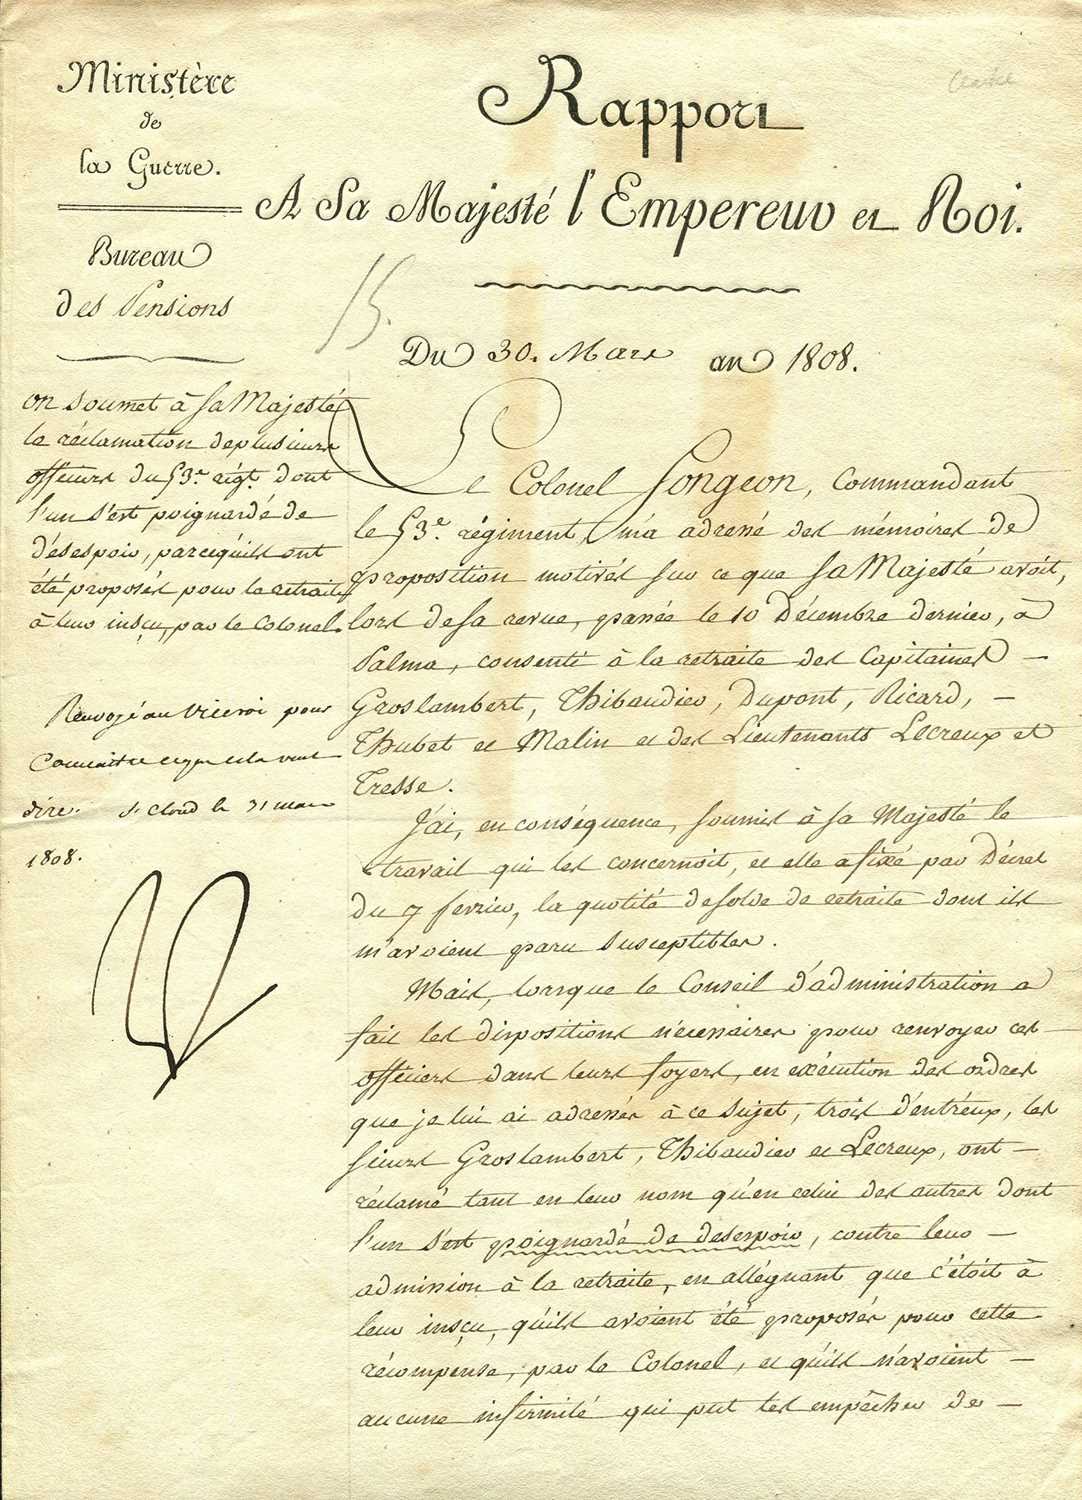 Ministère
de
la Guerre.
Bureau
des Pensions
Rapport
A Sa Majesté l'Empereur et Roi.
15.
Du 30. Mars an 1808.
on soumet à sa Majesté
la réclamation de plusieurs
officiers du 53.e régt. dont
l'un s'est poignardé de
désespoir, parcequ'ils ont
été proposés pour la retraite
à leur insçu, par le Colonel.
Renvoyé au viceroi pour
Connaitre ce que cela veut
dire. St. Cloud le 31 mars
1808.
Le Colonel Songeon, Commandant
le 53.e régiment, m'a adressé des mémoires de
proposition motivés sur ce que sa Majesté avoit,
lors de sa revue, passée le 10 Décembre dernier, à
Palma, consenti à la retraite des Capitaines
Groslambert, Thibaudier, Dupont, Ricard,
Thubet et Malin et des Lieutenants Lecreux et
Tresse.
J'ai, en conséquence, soumis à sa Majesté le
travail qui les concernoit, et elle a fixé par Décret
du 7 fevrier, la quotité de solde de retraite dont ils
m'avoient paru susceptibles.
Mais, lorsque le Conseil d'administration a
fait les dispositions nécessaires pour renvoyer ces
officiers dans leurs foyers, en exécution des ordres
que je lui ai adressés à ce sujet, trois d'entr'eux, les
sieurs Groslambert, Thibaudier et Lecreux, ont
réclamé tant en leur nom qu'en celui des autres dont
l'un s'est poignardé de desespoir, contre leur
admission à la retraite, en alléguant que c'étoit à
leur insçu, qu'ils avoient été proposés pour cette
récompense, par le Colonel, et qu'ils n'avoient
aucune infirmité qui put les empêcher de